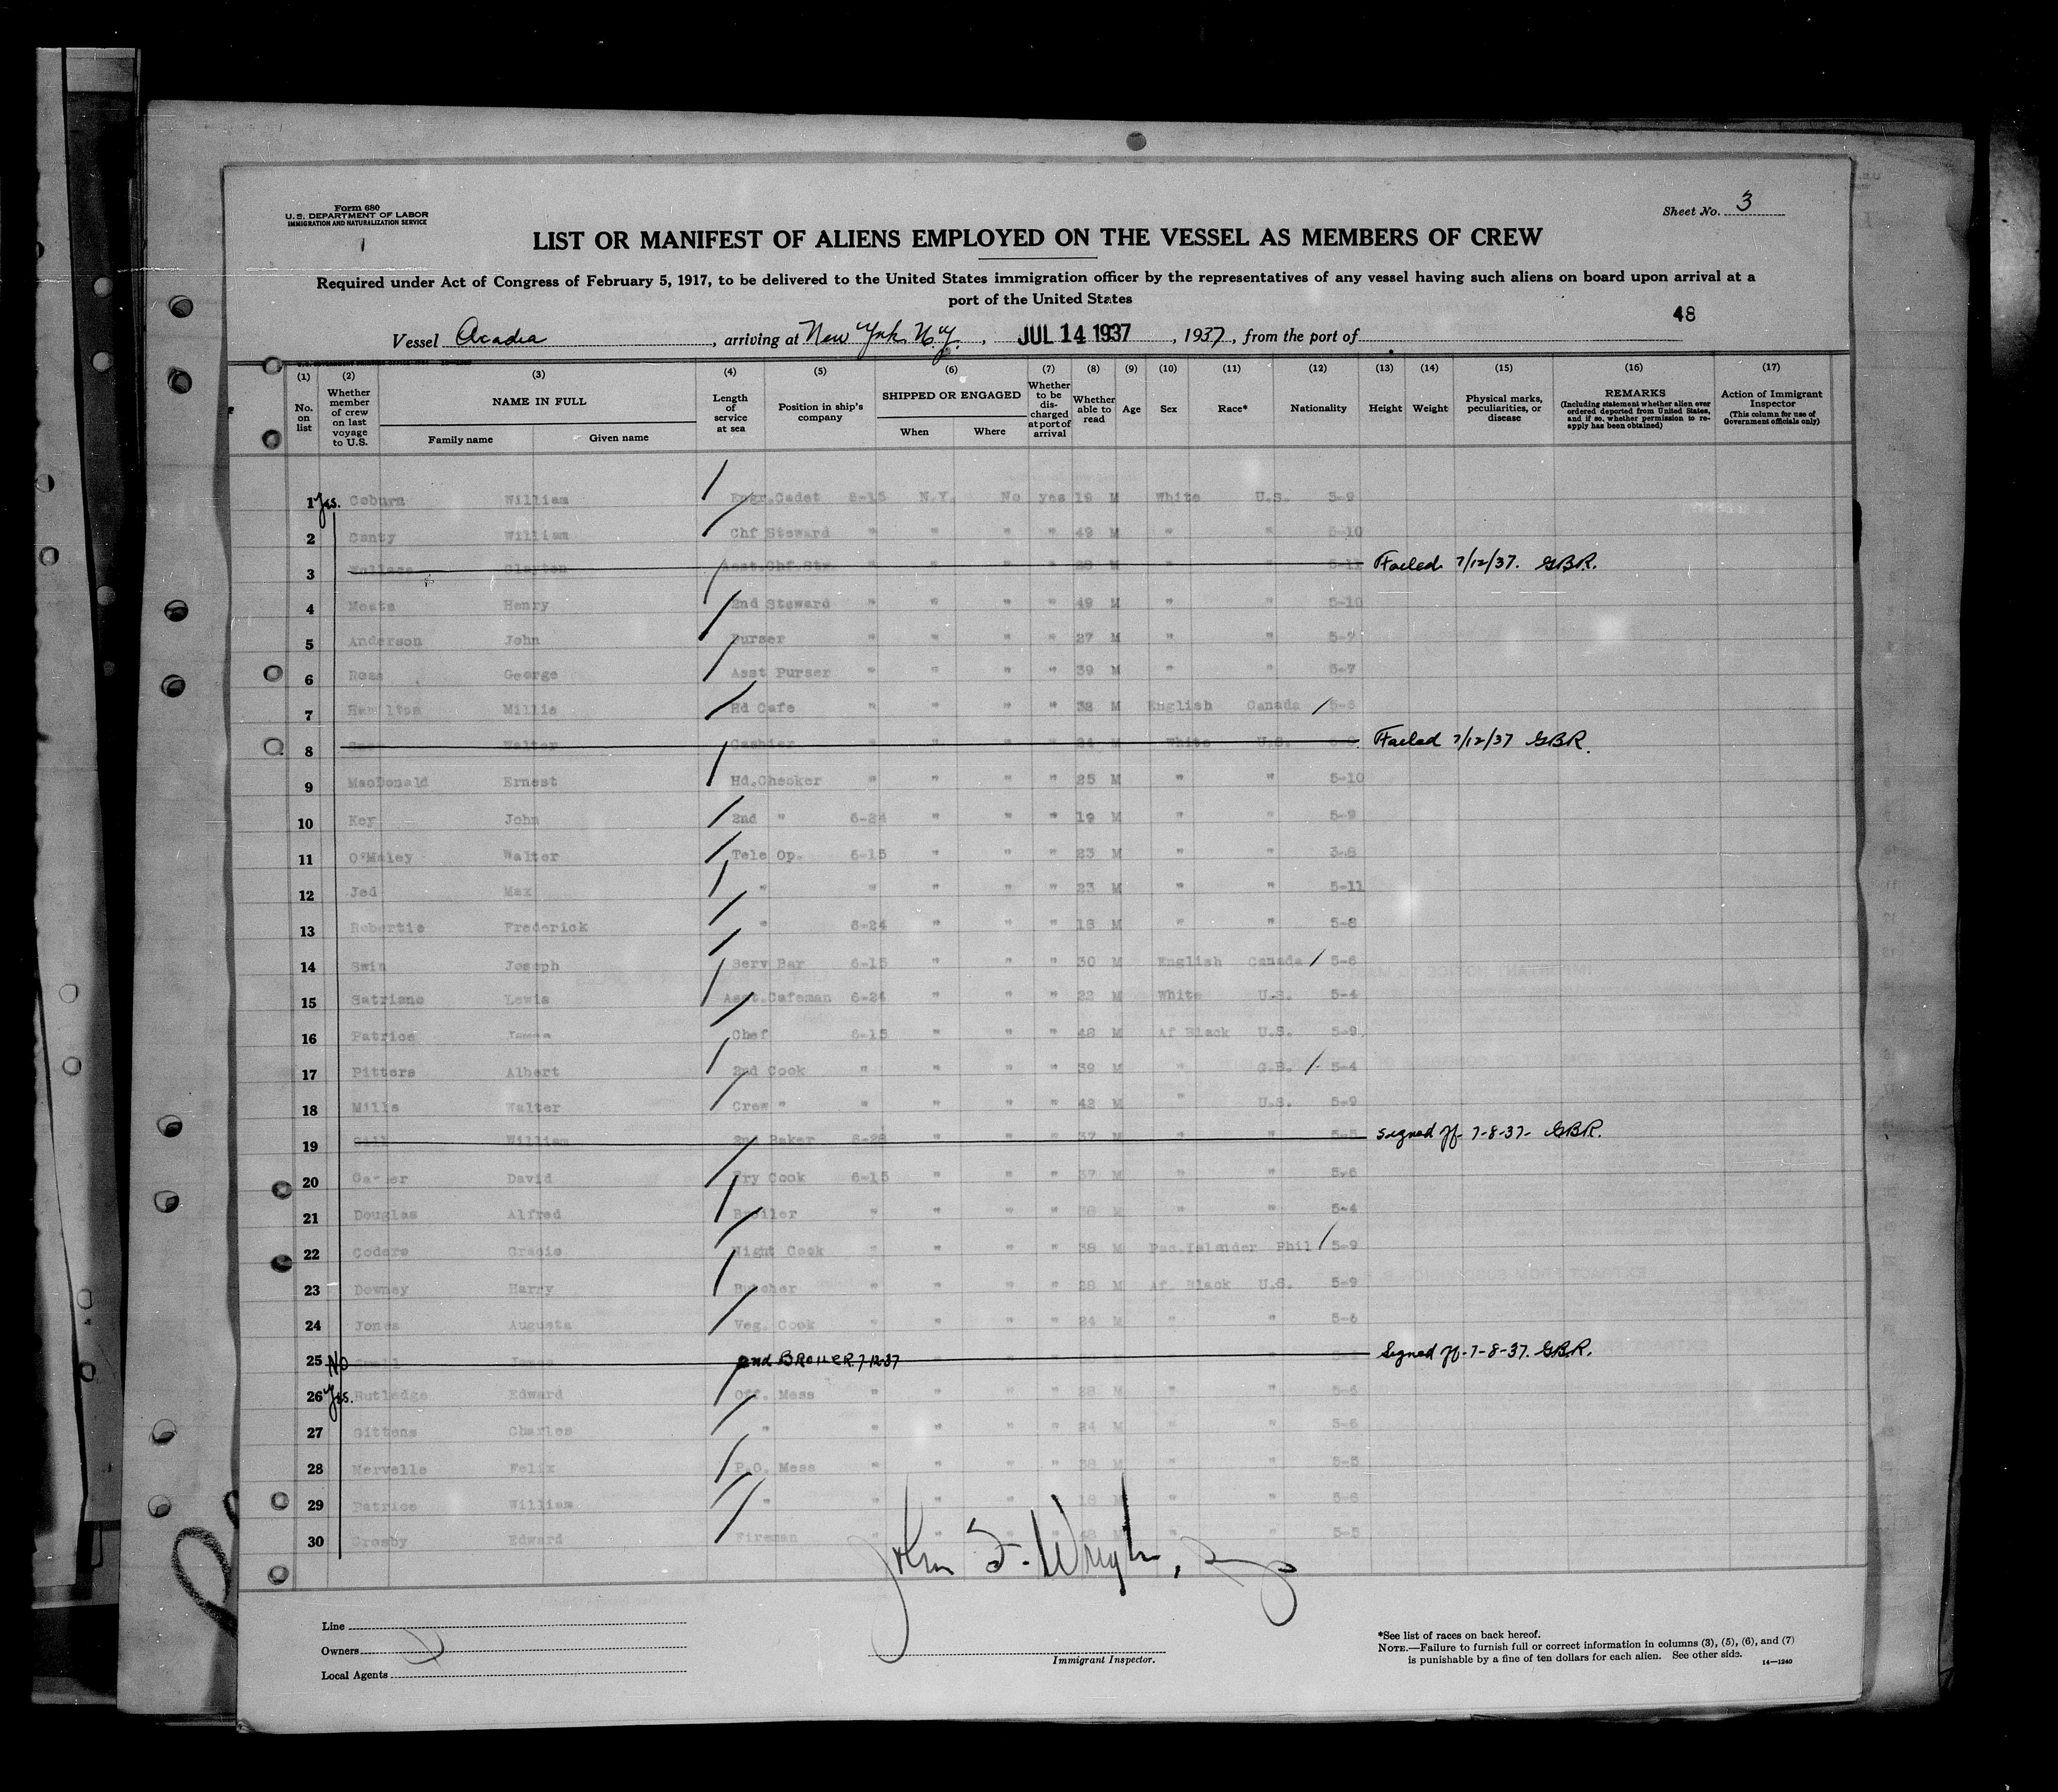 Form 680
U. S. DEPARTMENT OF LABOR
IMMIGRATION AND NATURALIZATION SERVICE
Sheet No. 3
LIST OR MANIFEST OF ALIENS EMPLOYED ON THE VESSEL AS MEMBERS OF CREW
Required under Act of Congress of February 5, 1917, to be delivered to the United States immigration officer by the representatives of any vessel having such aliens on board upon arrival at a
port of the United States
48
Vessel Acadia, arriving at New York N.Y., JUL 14 1937, 1937, from the port of
(1) (2) (3) (4) (5) (6) (7) (8) (9) (10) (11) (12) (13) (14) (15) (16) (17)
No. on list
Whether member of crew on last voyage to U.S.
NAME IN FULL
Family name Given name
Length of service at sea
Position in ship's company
SHIPPED OR ENGAGED
When Where
Whether to be discharged at port of arrival
Whether able to read
Age Sex Race* Nationality Height Weight
Physical marks, peculiarities, or disease
REMARKS
(Including statement whether alien ever ordered deported from United States, and if so, whether permission to reapply has been obtained)
Action of Immigrant Inspector
(This column for use of Government officials only)
1 Yes. Coburn William Engr.Cadet 6-15 N.Y. No yes 19 M White U.S. 5-9
2 Santy William Chf Steward " " " " 49 M " " 5-10
3 Wallace Clayton Asst.Chf.Stw. " " " " 28 M " " 5-11 Failed 7/12/37. GBR.
4 Moats Henry 2nd Steward " " " " 49 M " " 5-10
5 Anderson John Purser " " " " 27 M " " 5-7
6 Ross George Asst Purser " " " " 39 M " " 5-7
7 Hamilton Millie Hd Cafe " " " " 38 M English Canada / 5-8
8 Walter Cashier " " " " 24 M White U.S. Failed 7/12/37 GBR.
9 MacDonald Ernest Hd.Checker " " " " 25 M " " 5-10
10 Key John 2nd " 6-24 " " " 19 M " " 5-9
11 O'Maley Walter Tele Op. 6-15 " " " 23 M " " 3-8
12 Jed Max " " " " " 23 M " " 5-11
13 Robertie Frederick " 6-24 " " " 18 M " " 5-8
14 Swin Joseph Serv Bar 6-15 " " " 30 M English Canada / 5-6
15 Satriano Lewis Asst.Cafeman 6-24 " " " 22 M White U.S. 5-4
16 Patrice James Chef 6-15 " " " 48 M Af Black U.S. 5-9
17 Pitters Albert 2nd Cook " " " " 39 M " G.B. / 5-4
18 Mills Walter Crew " " " " " 42 M " U.S. 5-9
19 Gill William 2nd Baker 6-28 " " " 37 M " " 5-5 Signed off 7-8-37- GBR.
20 David Fry Cook 6-15 " " " 37 M " " 5-6
21 Douglas Alfred Broiler " " " " 36 M " " 5-4
22 Codero Gracio Night Cook " " " " 38 M Pac.Islander Phil / 5-9
23 Downey Harry Butcher " " " " 28 M Af. Black U.S. 5-9
24 Jones Augusta Veg. Cook " " " " 24 M " " 5-6
25 No James 2nd BROILER 7-12-37 Signed off-7-8-37. GBR.
26 Yes. Rutledge Edward Off. Mess " " " " 28 M " " 5-6
27 Gittens Charles " " " " " 24 M " " 5-6
28 Mervelle Felix P.O. Mess " " " " 38 M " " 5-5
29 Patrice William " " " " " 18 M " " 5-6
30 Crosby Edward Fireman " " " " 48 M " " 5-5
John F. Wright,
Line
Owners
Local Agents
Immigrant Inspector.
*See list of races on back hereof.
NOTE.—Failure to furnish full or correct information in columns (3), (5), (6), and (7)
is punishable by a fine of ten dollars for each alien. See other side.
14—1240